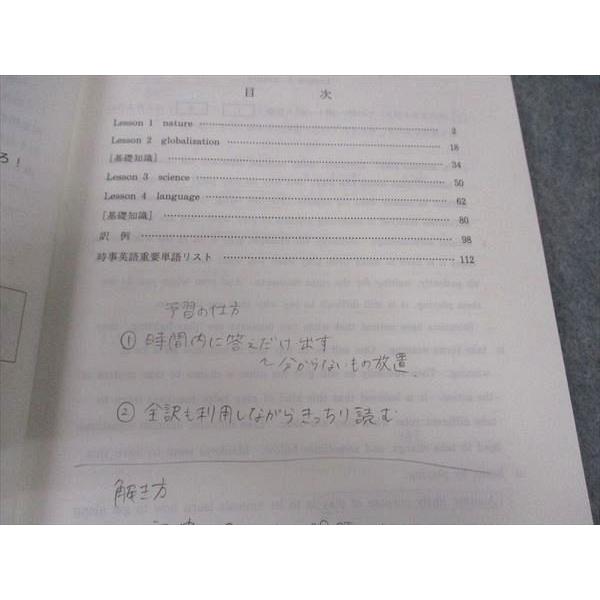 目 次
Lesson 1 nature 2
Lesson 2 globalization 18
［基礎知識］ 34
Lesson 3 science 50
Lesson 4 language 62
［基礎知識］ 80
訳 例 98
時事英語重要単語リスト 112
ろ！
予習の仕方
① 時間内に答えだけ出す
〜分からないもの放置
② 全訳も利用しながらきっちり読む
解き方